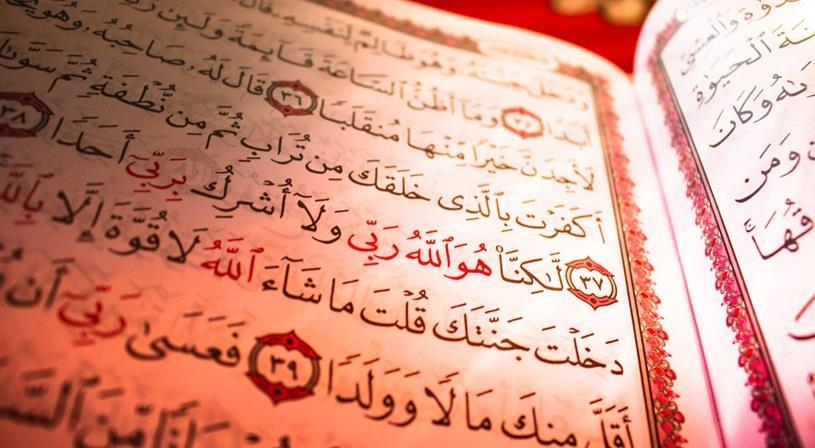 وَدَخَلَ جَنَّتَهُۥ وَهُوَ ظَالِمٌ لِّنَفْسِهِۦ قَالَ
أَبَدًا ٣٥ وَمَآ أَظُنُّ ٱلسَّاعَةَ قَآئِمَةً وَلَئِن
لَأَجِدَنَّ خَيْرًا مِّنْهَا مُنقَلَبًا ٣٦ قَالَ لَهُۥ صَاحِبُهُۥ وَهُوَ
أَكَفَرْتَ بِٱلَّذِى خَلَقَكَ مِن تُرَابٍ ثُمَّ مِن نُّطْفَةٍ ثُمَّ
٣٧ لَّٰكِنَّا۠ هُوَ ٱللَّهُ رَبِّى وَلَآ أُشْرِكُ بِرَبِّىٓ أَحَدًا ٣٨
دَخَلْتَ جَنَّتَكَ قُلْتَ مَا شَآءَ ٱللَّهُ لَا قُوَّةَ إِلَّا بِٱللَّهِ
أَقَلَّ مِنكَ مَالًا وَوَلَدًا ٣٩ فَعَسَىٰ رَبِّىٓ أَن
مِّنَ
وَٱلْعَشِىِّ
ٱلْحَيَوٰةِ
وَكَانَ
وَمَن